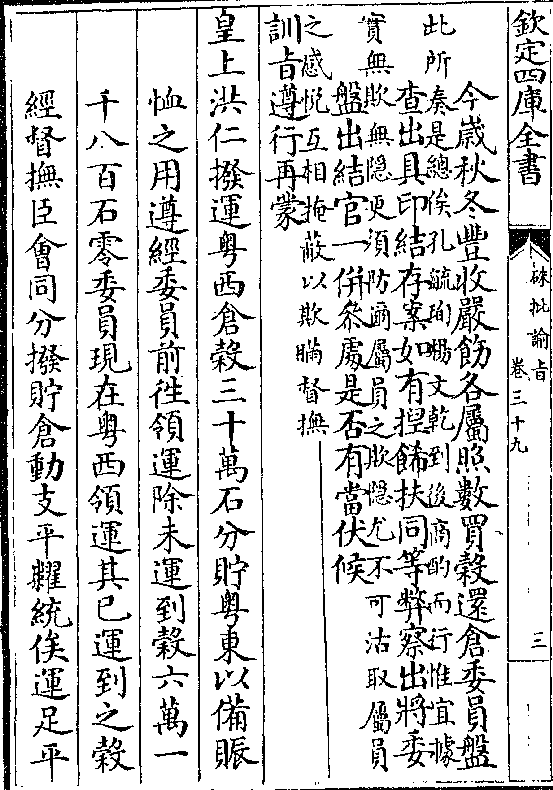 欽定四庫全書
硃批諭旨
卷三十九
三
今歲秋冬豐收嚴飭各屬照數買穀還倉委員盤
此所奏是總俟孔毓珣楊文乾到後商酌而行惟宜據
查出具印結存案如有捏餙扶同等弊察出將委
實無欺無隱更須防爾屬員之欺隱尤不可沽取屬員
盤出結官一併叅處是否有當伏候
之感悅互相掩蔽以欺瞞督撫
訓旨遵行再蒙
皇上洪仁撥運粵西倉穀三十萬石分貯粵東以備賑
恤之用遵經委員前徃領運除未運到穀六萬一
千八百石零委員現在粵西領運其已運到之穀
經督撫臣會同分撥貯倉動支平糶統俟運足平